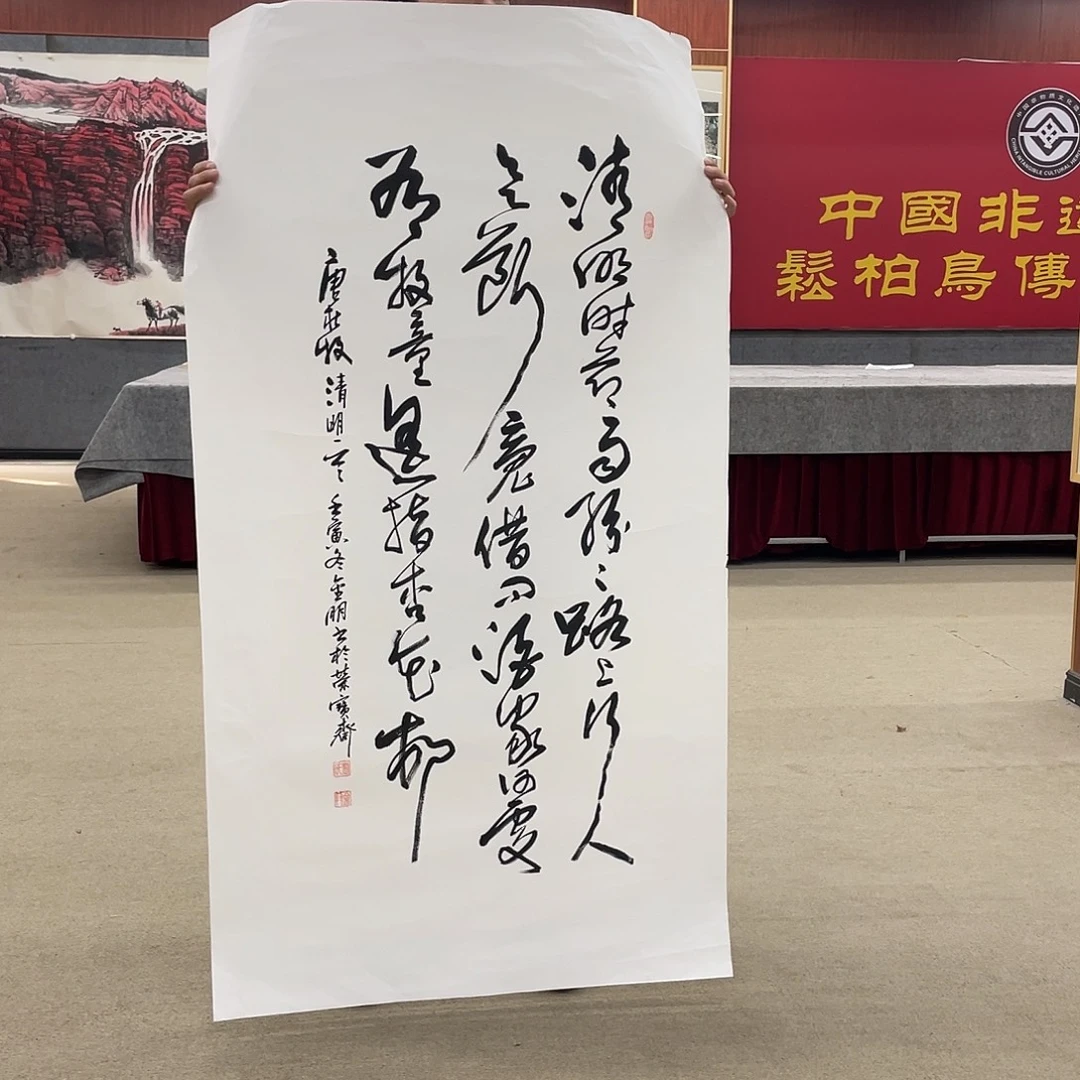 清明时节雨纷〻路上行人
欲断魂借问酒家何处
有牧童遥指杏花邨
唐杜牧清明一首 壬寅冬金明书於荣宝斋
中國非
鬆柏鳥傳
CHINA INTANGIBLE CULTURAL